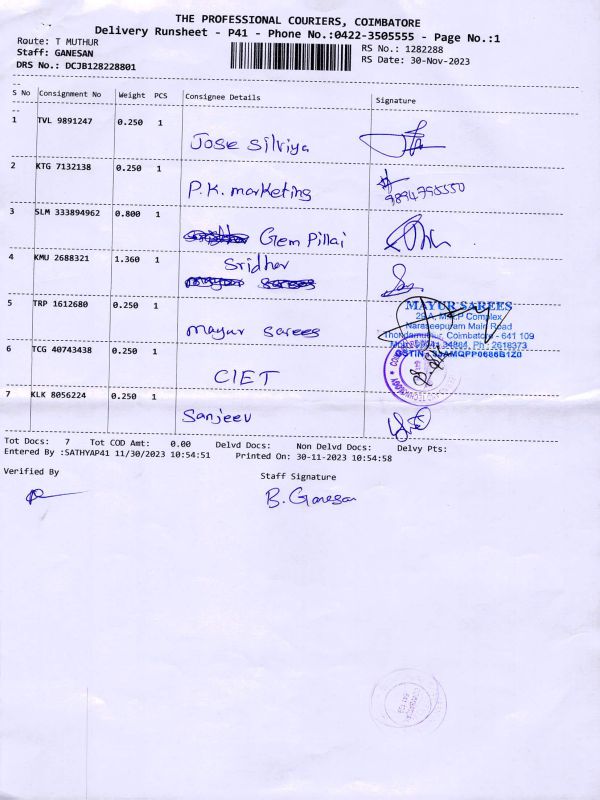 THE PROFESSIONAL COURIERS, COIMBATORE
Delivery Runsheet - P41 - Phone No.:0422-3505555 - Page No.:1
Route: T MUTHUR RS No.: 1282288
Staff: GANESAN RS Date: 30-Nov-2023
DRS No.: DCJB128228801
S No Consignment No Weight PCS Consignee Details Signature
1 TVL 9891247 0.250 1
Jose Silviya
2 KTG 7132138 0.250 1
P.K. marketing 9894795550
3 SLM 333894962 0.800 1
Gem Pillai
4 KMU 2688321 1.360 1
Sridher
5 TRP 1612680 0.250 1
Mayur Sarees
MAYUR SAREES
Complex
Naraseepuram Main Road
Coimbatore - 641 109
Ph: 2618373
6 TCG 40743438 0.250 1
CIET
7 KLK 8056224 0.250 1
Sanjeev
Tot Docs: 7 Tot COD Amt: 0.00 Delvd Docs: Non Delvd Docs: Delvy Pts:
Entered By :SATHYAP41 11/30/2023 10:54:51 Printed On: 30-11-2023 10:54:58
Verified By
Staff Signature
B. Ganesan